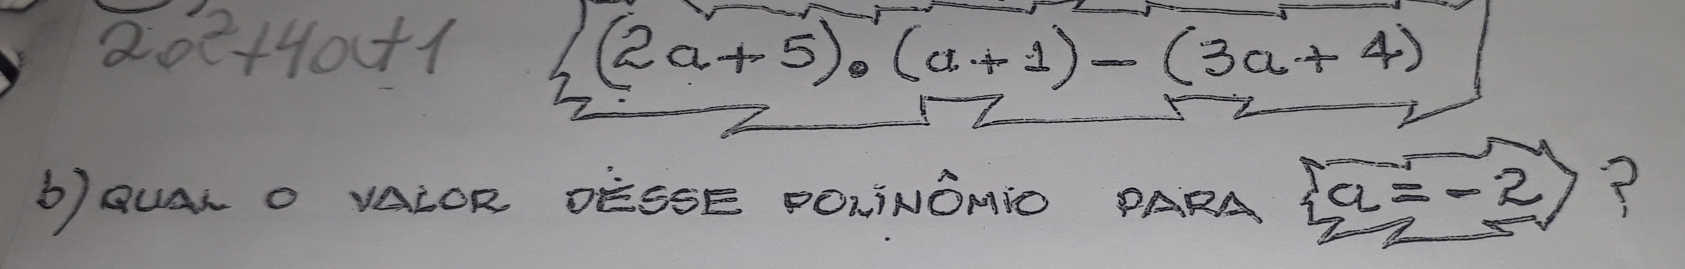 2a²+4a+1 (2a+5).(a+1)-(3a+4)
b) QUAL O VALOR DESSE POLINÔMIO PARA a=-2?